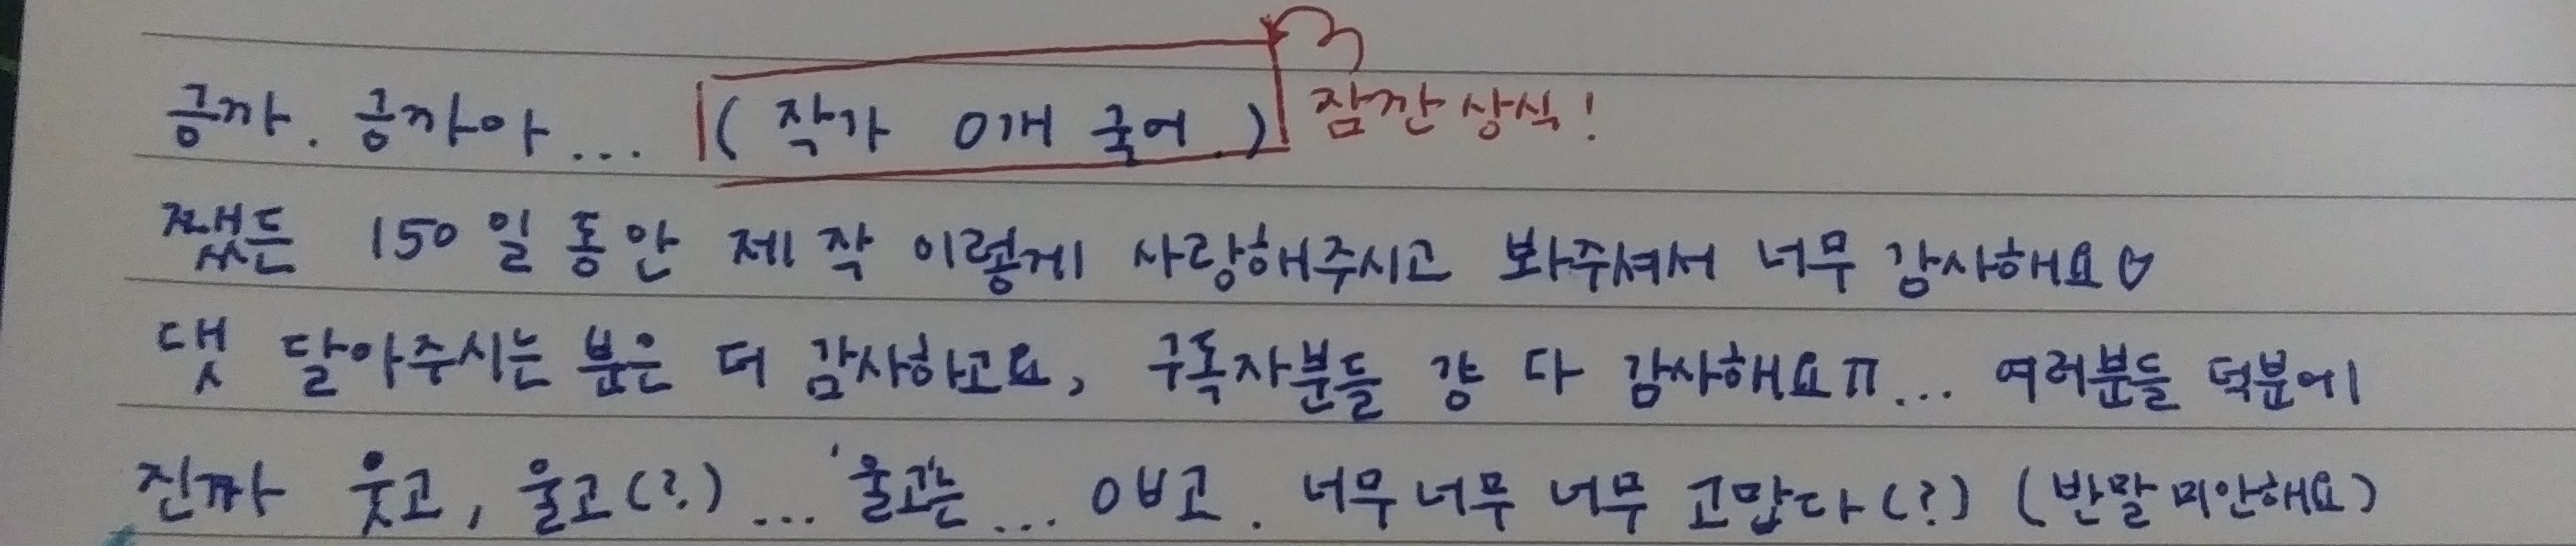 긍까. 긍까아... (작가 0개 국어.) 잠깐 상식!
쨌든 150일 동안 제 작 이렇게 사랑해주시고 봐주셔서 너무 감사해요♡
댓 달아주시는 분은 더 감사하고요, 구독자분들 걍 다 감사해요ㅠ... 여러분들 덕분에
진짜 웃고, 울고(?)... '울고'는... 오바고. 너무너무 너무 고맙다(?) (반말 미안해요)